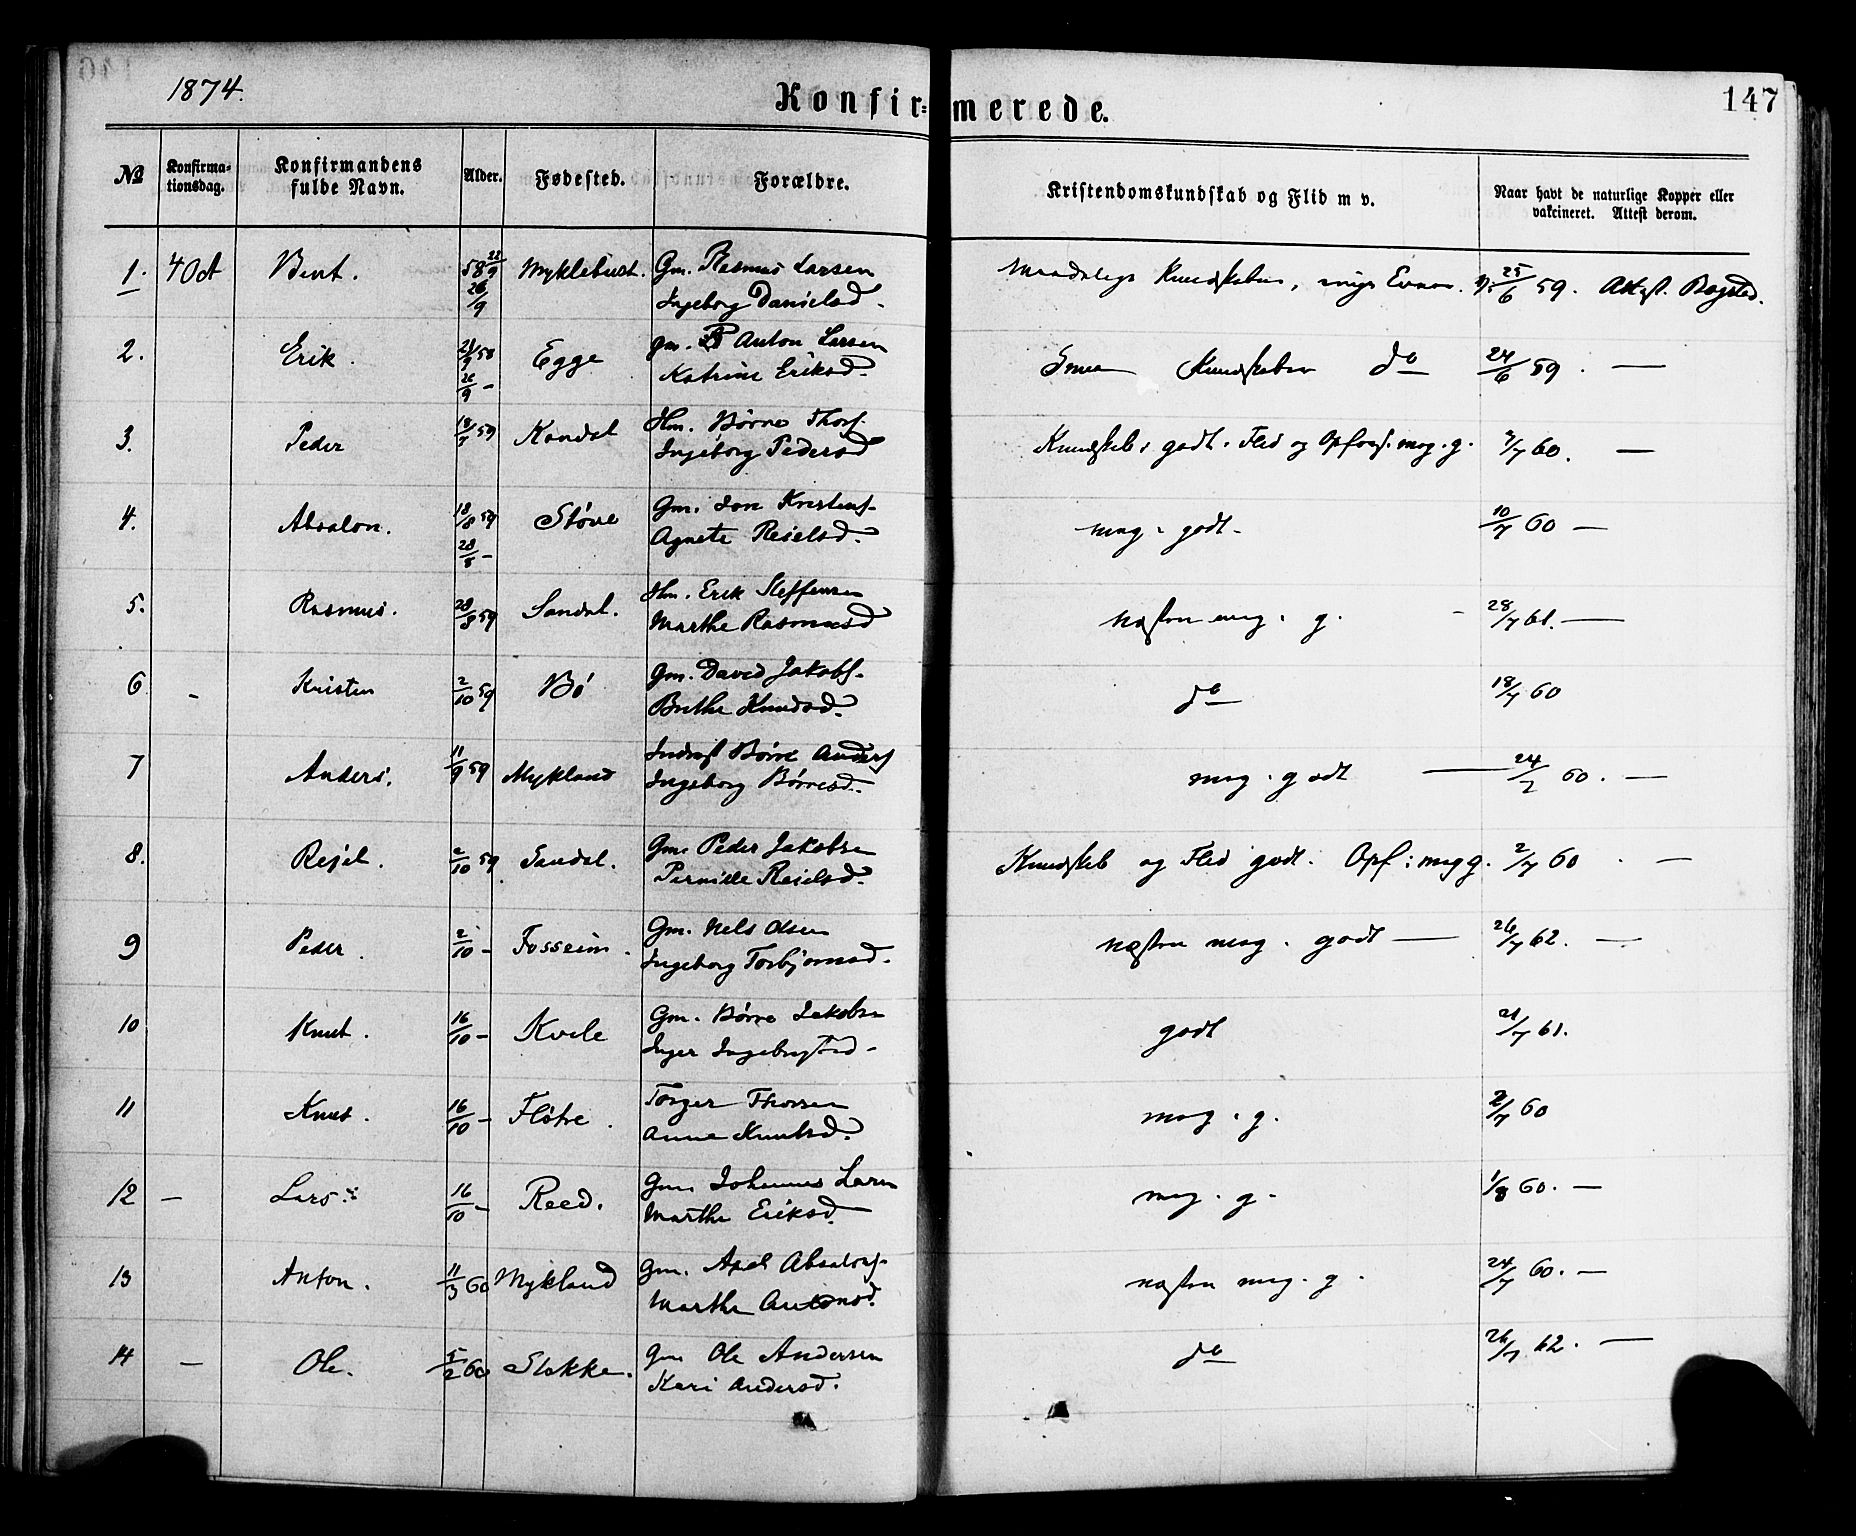 1874.
Konfirmerede.
147
№ Konfirmationsdag. Konfirmandens fulde Navn. Alder. Fødested. Forældre. Kristendomskundskab og Flid m v. Naar havt de naturlige Kopper eller vakcineret. Attest derom.
1. 4 Oct Bent. 58 22/9 Myklebust. Gm. Rasmus Larsen Kundskaber, 25/6 59. Attest.
26/9 Ingeborg Danielsd.
2. Erik. 21/9 58 Egge Gm. Anton Larsen Kundskaber do 24/6 59. —
9 – Katrine Eriksd.
3. Peder 18/7 59 Kandal Hm. Børre Thors. Kundskab: godt. Flid og Opførs. meg. g. /7 60. —
Ingeborg Pedersd
4. Absalon. 18/8 59 Støve Gm. Jon Kristens. meg. godt. 10/7 60 —
28/8 – Agnete Reielsd.
5. Rasmus. 28/8 59 Sandal. Hm. Erik Steffensen næsten meg. g. – 28/7 61. —
Marthe Rasmusd
6 – Kristen 2/10 59 Bø Gm. David Jakobs. do 18/7 60
Brithe Knudsd.
7 Anders. 11/9 59 Mykland Inderst Børre Anders meg. godt — 24/7 60. —
Ingeborg Børresd.
8. Rejel. 2/10 59 Sandal. Gm. Peder Jakobsen Kundskab og Flid godt. Opf: meg g. 2/7 60. —
Pernille Reielsd.
9 Peder. 2/10 – Fosseim. Gm. Nels Olsen næsten meg. godt — 26/7 62. —
Ingeborg Torbjørnsd.
10 Knut. 16/10 – Kvele Gm. Børre Jakobsen godt 21/7 61.
Inger Ingebrigtsd.
11 Knut. 16/10 – Fløtre. Torger Thorsen meg. g. 2/7 60
Anna Knutsd.
12 – Lars. 16/10 – Reed. Gm. Johannes Larsen meg. g. 1/8 60. —
Marthe Eriksd.
13 Anton. 11/3 60 Mykland Gm. Axel Absalons. næsten meg. g. 24/7 60. —
Marthe Antonsd.
14 – Ole. 5/2 60 Stokke. Gm Ole Andersen do 26/7 62. —
Kari Andersd.